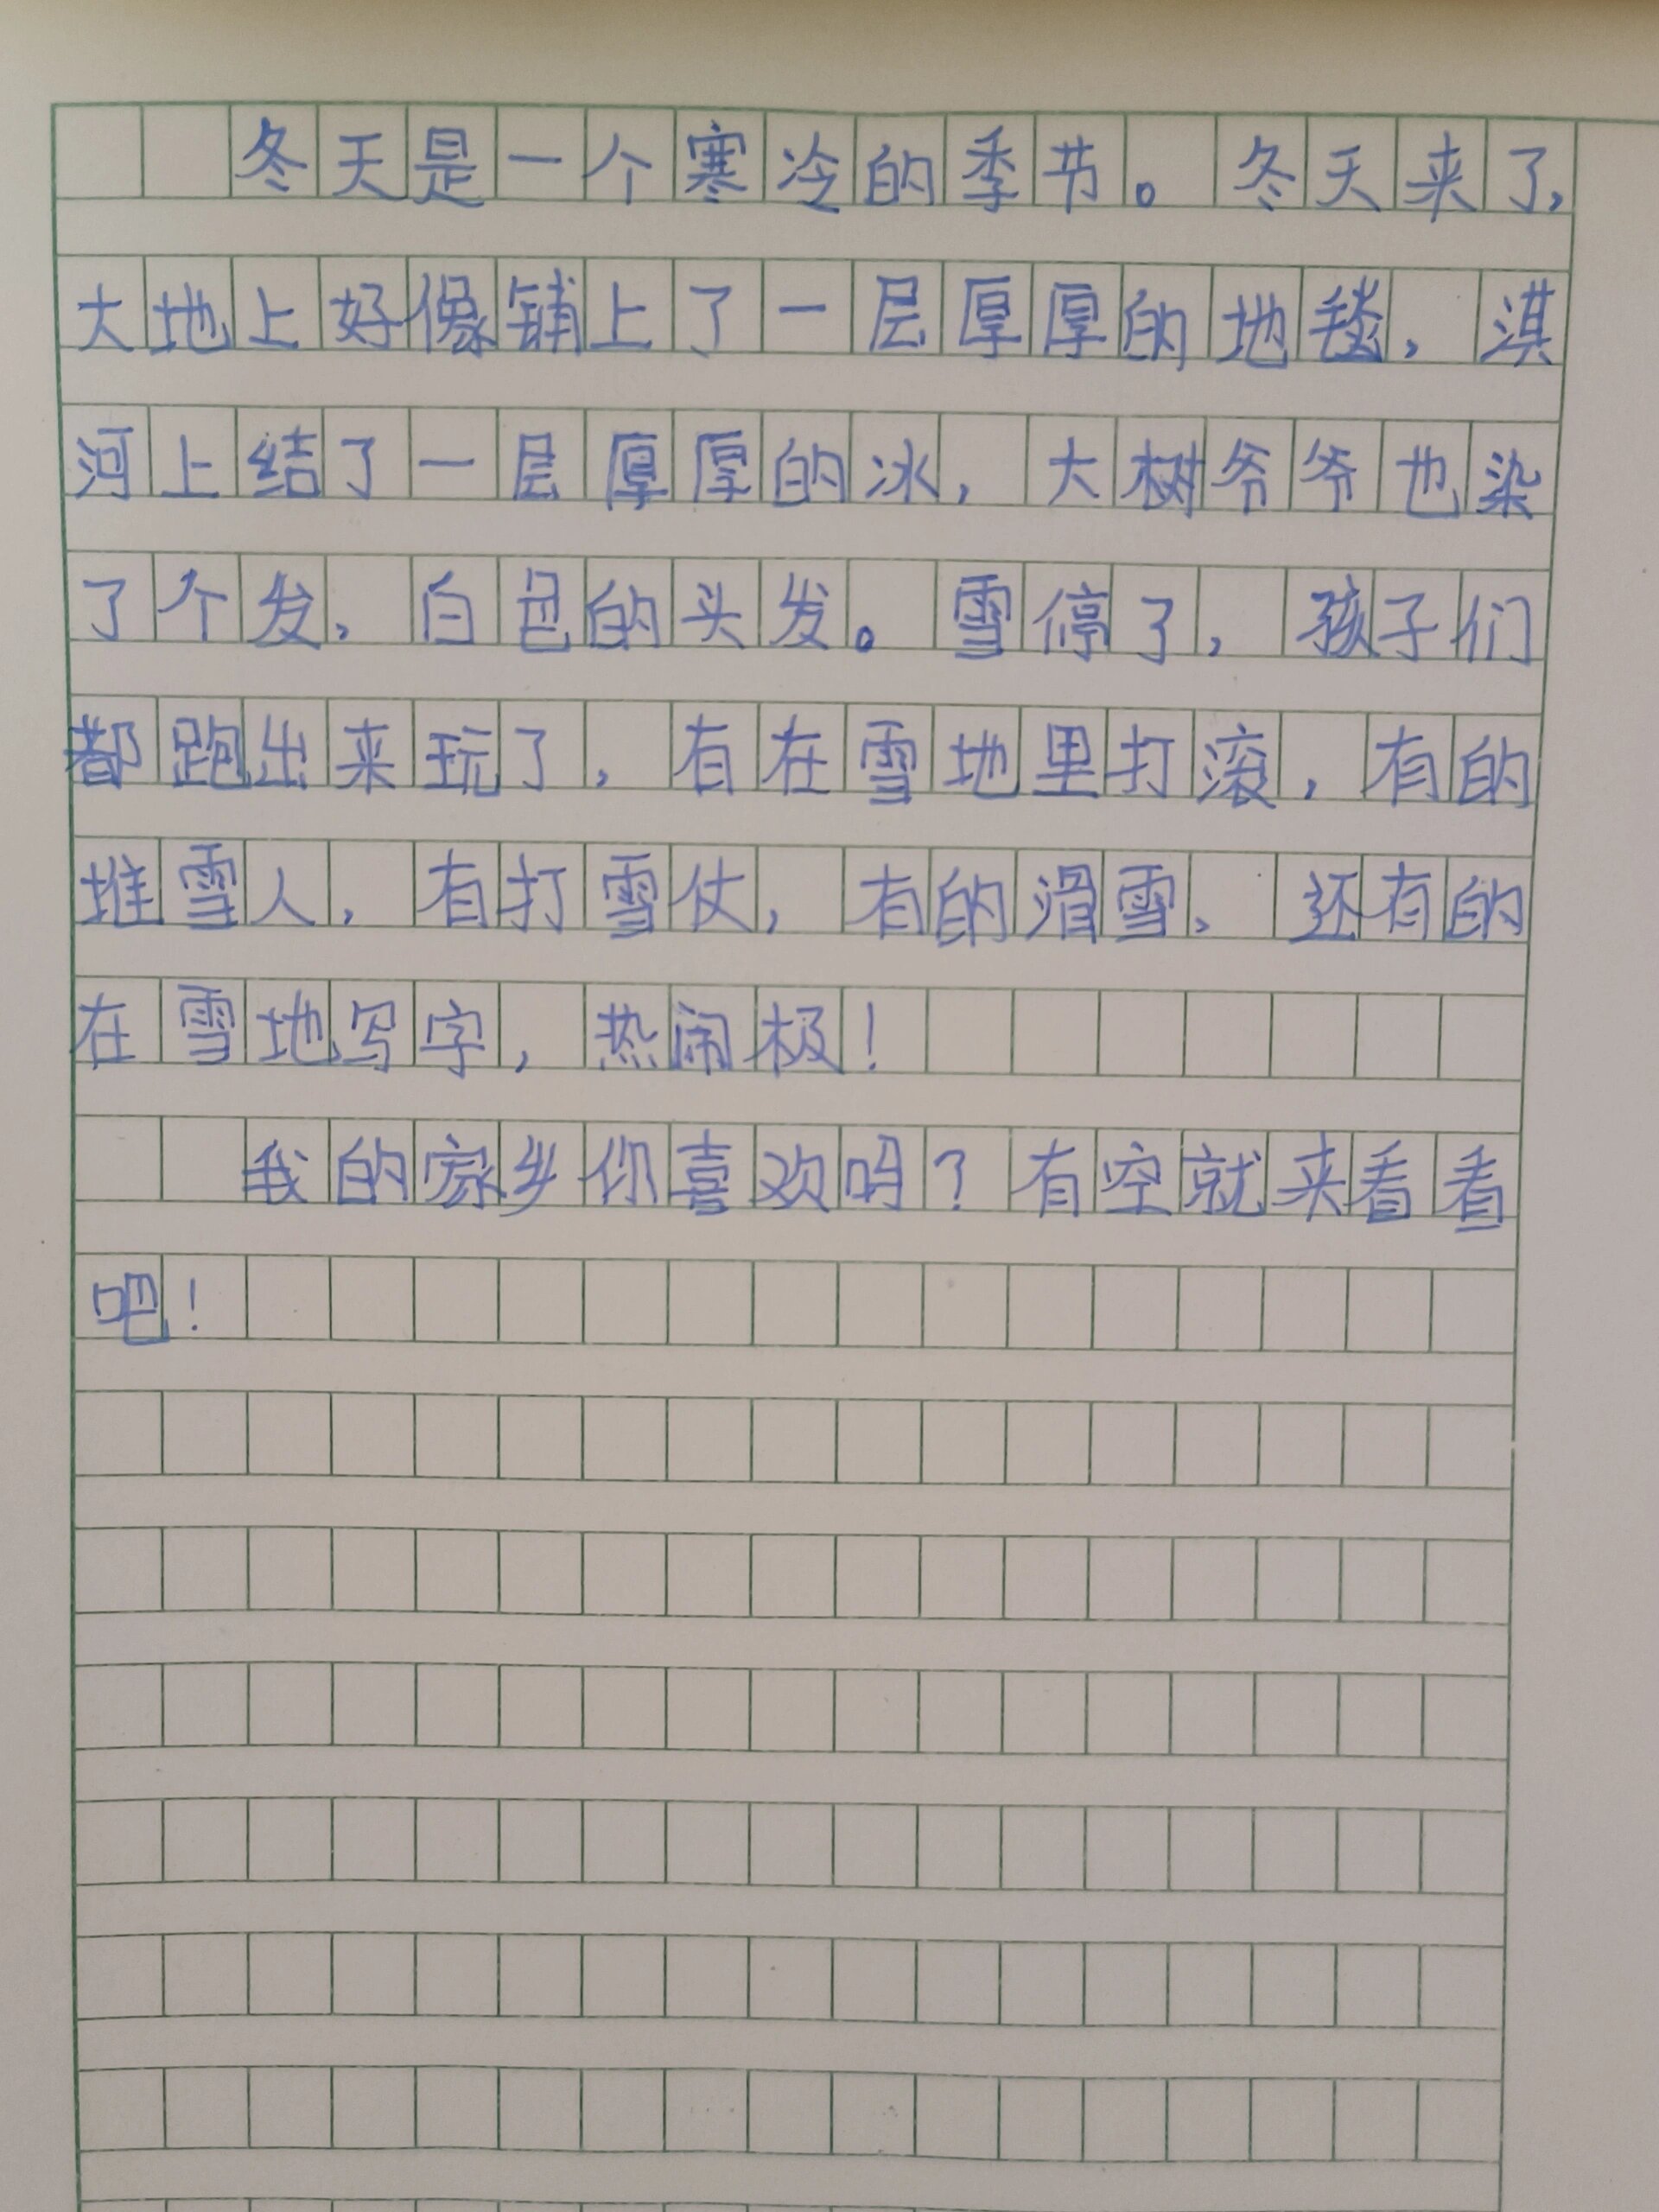 冬天是一个寒冷的季节。冬天来了,
大地上好像铺上了一层厚厚的地毯,淇
河上结了一层厚厚的冰,大树爷爷也染
了个发,白色的头发。雪停了,孩子们
都跑出来玩了,有在雪地里打滚,有的
堆雪人,有打雪仗,有的滑雪、还有的
在雪地写字,热闹极!
我的家乡你喜欢吗?有空就来看看
吧!